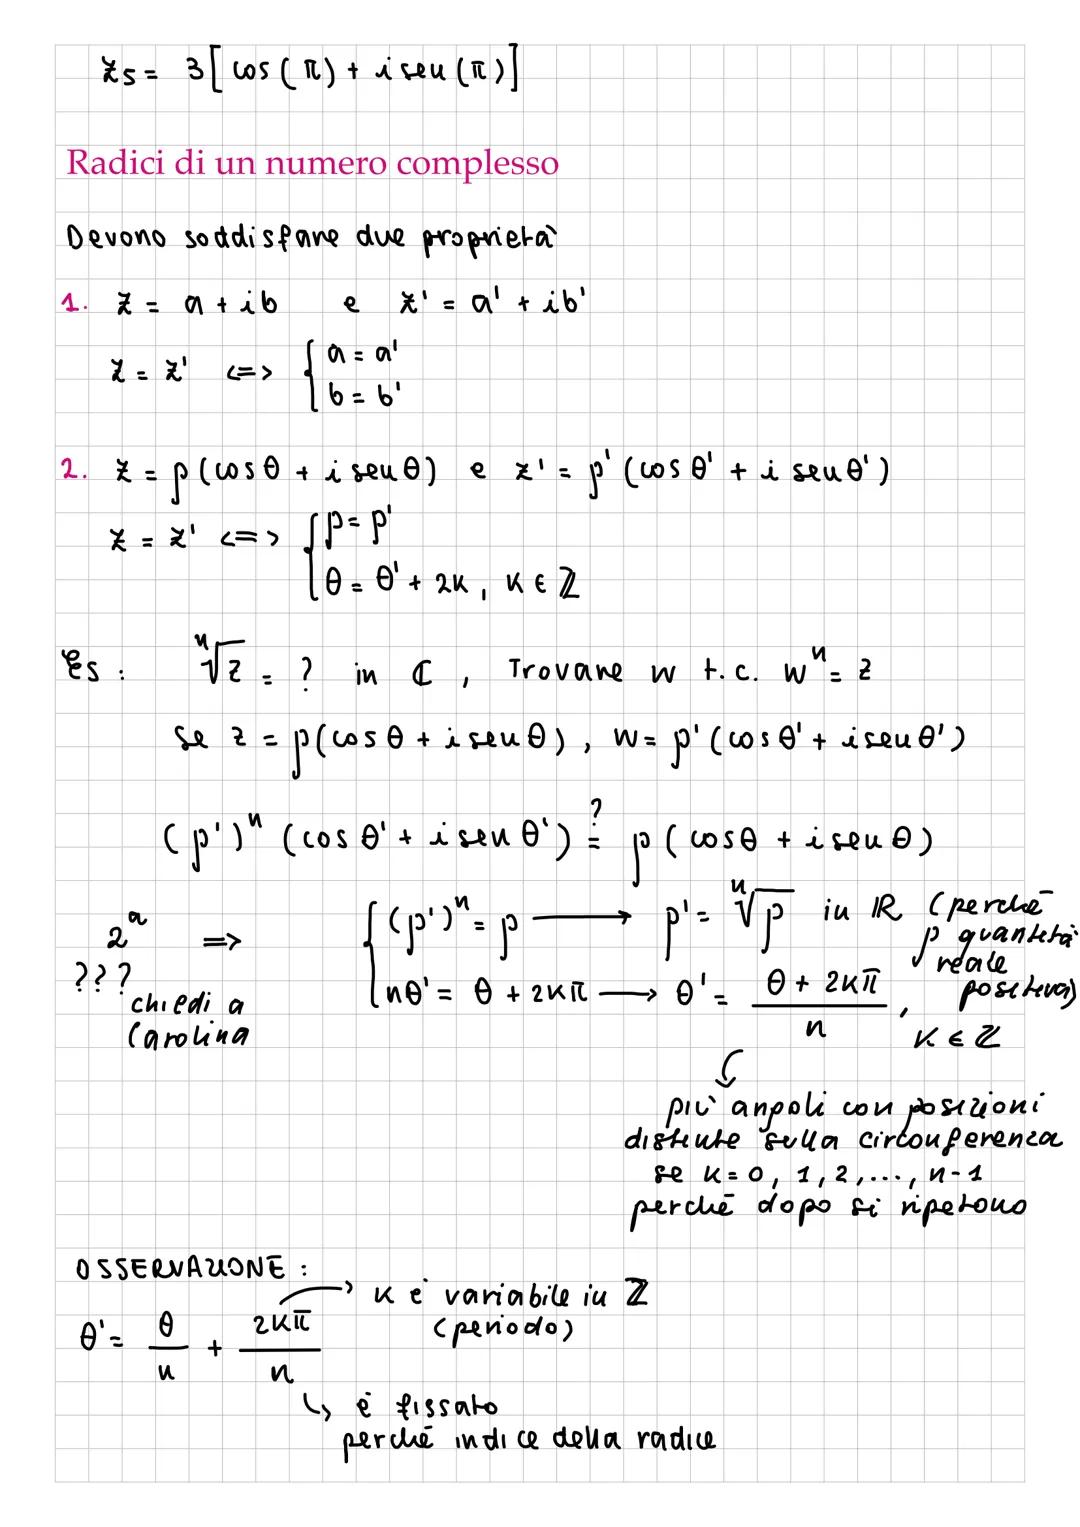 z5 = 3[cos(π) + i sen(π)]
Radici di un numero complesso
Devono soddisfare due proprietà
1. z = a + ib e z' = a' + ib'
z = z' <=> { a = a'
b = b'
2. z = ρ(cosθ + i senθ) e z' = ρ'(cosθ' + i senθ')
z = z' <=> { ρ = ρ'
θ = θ' + 2k, k ∈ ℤ
Es: ⁿ√z = ? in ℂ, Trovare w t.c. wⁿ = z
se z = ρ(cosθ + i senθ), w = ρ'(cosθ' + i senθ')
(ρ')ⁿ (cosθ' + i senθ') ?= ρ(cosθ + i senθ)
2ª => { (ρ')ⁿ = ρ → ρ' = ⁿ√ρ in ℝ (perché
ρ quantità
reale
positiva)
??? nθ' = θ + 2kπ → θ' = (θ + 2kπ)/n, k ∈ ℤ
chiedi a
Carolina
più angoli con posizioni
distinte sulla circonferenza
se k = 0, 1, 2, ..., n-1
perché dopo si ripetono
OSSERVAZIONE:
→ k è variabile in ℤ
(periodo)
θ' = θ/n + 2kπ/n
↳ è fissato
perché indice della radice